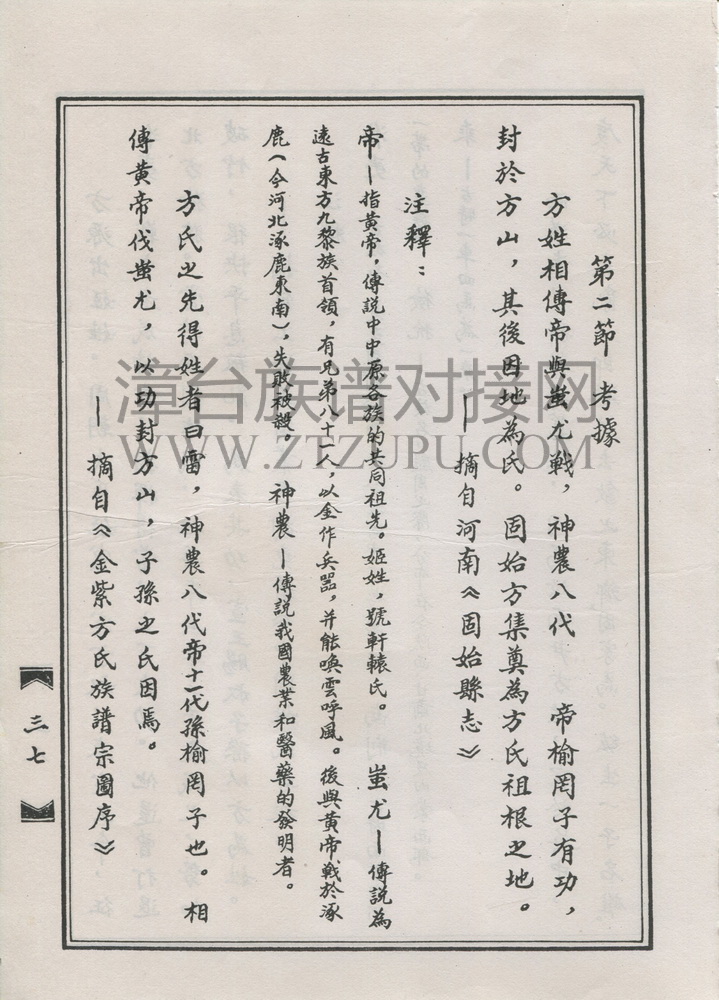 第二節 考據
方姓相傳帝與蚩尤戰，神農八代 帝榆罔子有功，
封於方山，其後因地為氏。固始方集奠為方氏祖根之地。
——摘自河南《固始縣志》
注釋：
帝—指黃帝，傳説中中原各族的共同祖先。姬姓，號軒轅氏。 蚩尤—傳説為
遠古東方九黎族首領，有兄弟八十一人，以金作兵器，并能喚雲呼風。後與黃帝戰於涿
鹿（今河北涿鹿東南），失敗被殺。 神農—傳説我國農業和醫藥的發明者。
方氏之先得姓者曰雷，神農八代帝十一代孫榆罔子也。相
傳黃帝伐蚩尤，以功封方山，子孫之氏因焉。
—摘自《金紫方氏族譜宗圖序》
三七
漳台族谱对接网
WWW.ZTZUPU.COM